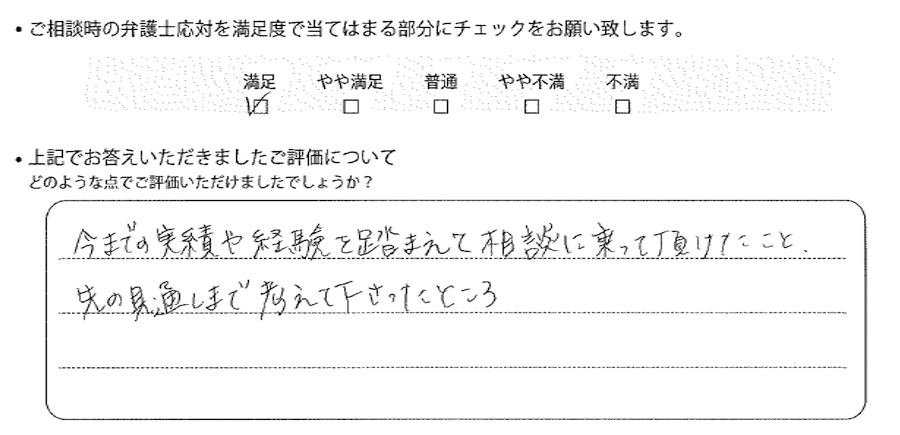 ・ご相談時の弁護士応対を満足度で当てはまる部分にチェックをお願い致します。
満足 やや満足 普通 やや不満 不満
・上記でお答えいただきましたご評価について
どのような点でご評価いただけましたでしょうか？
今までの実績や経験を踏まえて相談に乗って頂けたこと、
先の見通しまで考えて下さったところ